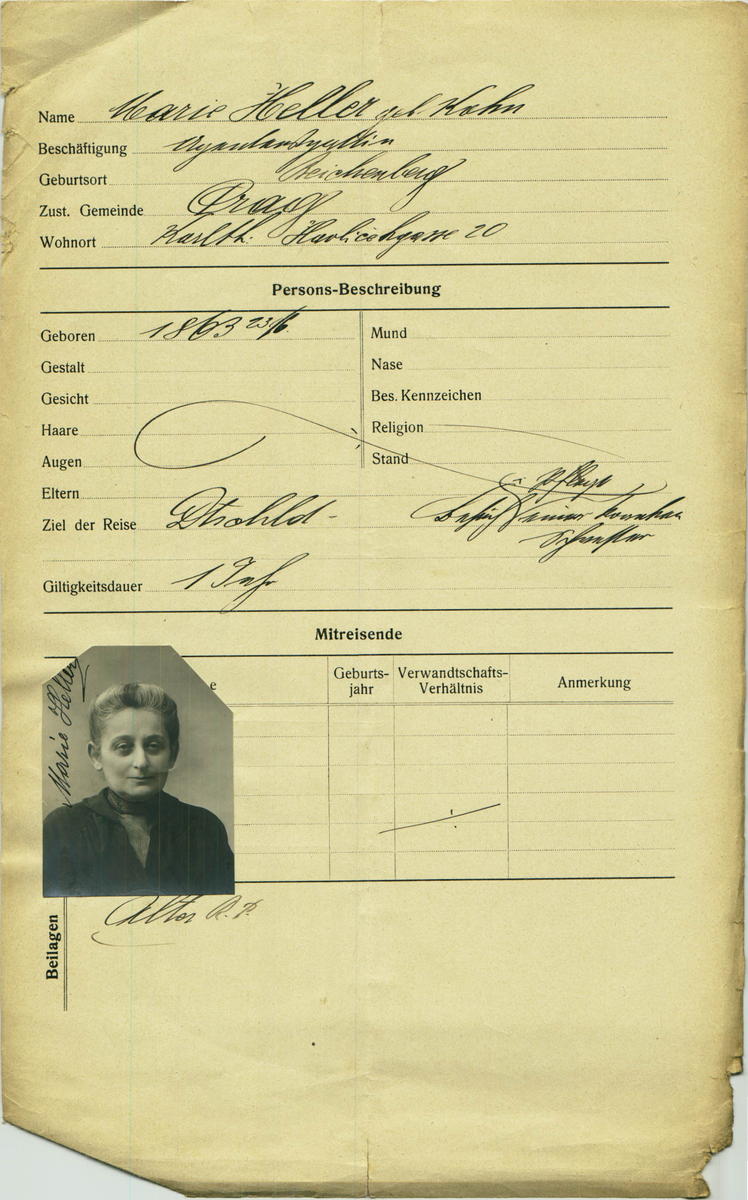 Name Marie Heller geb. Kohn
Beschäftigung Agentensgattin
Geburtsort Reichenberg
Zust. Gemeinde Prag
Wohnort Karlth. Havlicekgasse 20
Persons-Beschreibung
Geboren 1863 23/6.
Mund
Gestalt
Nase
Gesicht
Bes. Kennzeichen
Haare
Religion
Augen
Stand
Eltern
u. Pflege
Ziel der Reise Dtschld - Besuch einer kranken
Schwester
Giltigkeitsdauer 1 Jahr
Mitreisende
e
Geburts-
jahr
Verwandtschafts-
Verhältnis
Anmerkung
Marie Heller
Beilagen
Alter R. P.